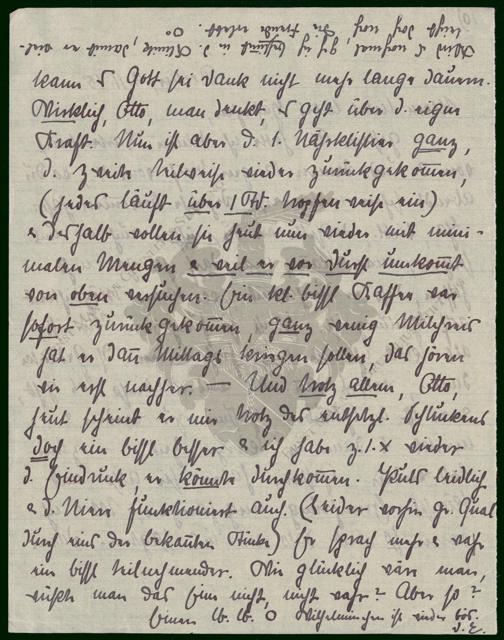 kann es Gott sei Dank nicht mehr lange dauern.
Wirklich, Otto, man denkt, es geht über d. eigne
Kraft. Nun ist aber d. 1. Nährklistier ganz,
d. zweite teilweise wieder zurückgekommen,
(jedes läuft über 1 Std. tropfenweise ein)
& deshalb wollen sie heut nun wieder mit mini-
malen Mengen & weil er vor Durst umkommt
von oben versuchen. Ein kl. bissl Kaffee war
sofort zurückgekommen, ganz wenig Milchreis
hat er dann Mittags kriegen sollen, das hören
wir erst nachher. — Und trotz allem, Otto,
heut scheint er mir trotz des entsetzl. Schluckens
doch ein bissl besser & ich habe z. 1. x wieder
d. Eindruck, er könnte durchkommen. Puls leidlich
& d. Niere funktioniert auch. (Leider vorhin gr. Qual
durch eins der bekannten) Er sprach mehr & war
ein bissl teilnehmender. Wie glücklich wäre man,
wüßte man das Eine nicht, nicht wahr? Aber so?
Wilhelminchen ist wieder bös.
D. E.